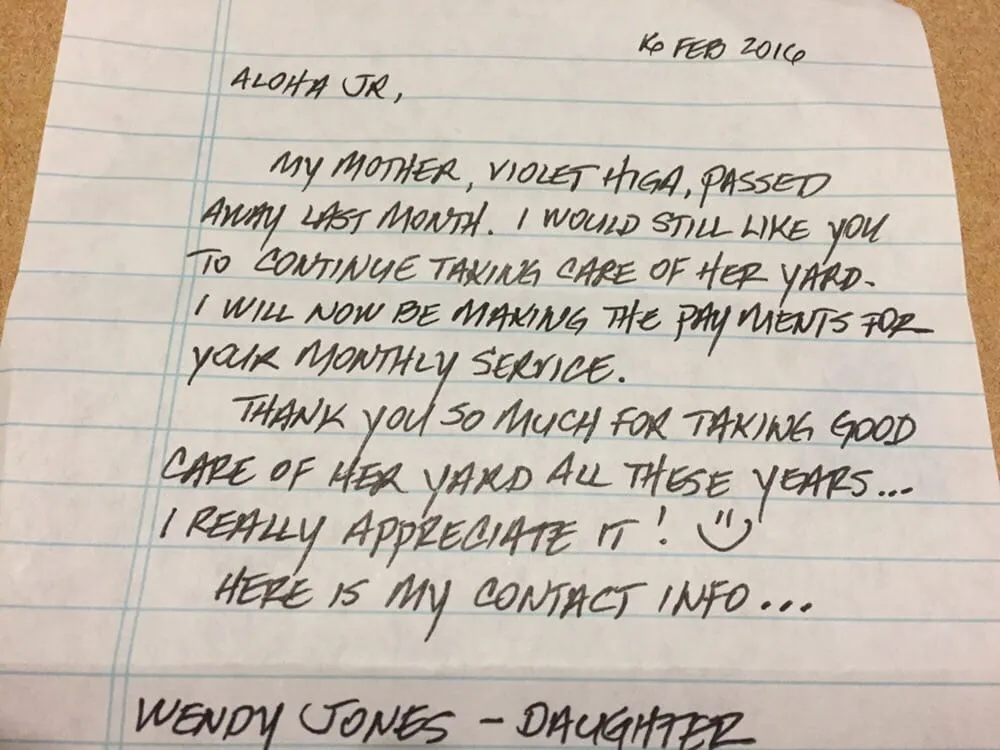 16 FEB 2016
ALOHA JR,
MY MOTHER, VIOLET HIGA, PASSED
AWAY LAST MONTH. I WOULD STILL LIKE YOU
TO CONTINUE TAKING CARE OF HER YARD.
I WILL NOW BE MAKING THE PAYMENTS FOR
YOUR MONTHLY SERVICE.
THANK YOU SO MUCH FOR TAKING GOOD
CARE OF HER YARD ALL THESE YEARS...
I REALLY APPRECIATE IT!
HERE IS MY CONTACT INFO...
WENDY JONES - DAUGHTER